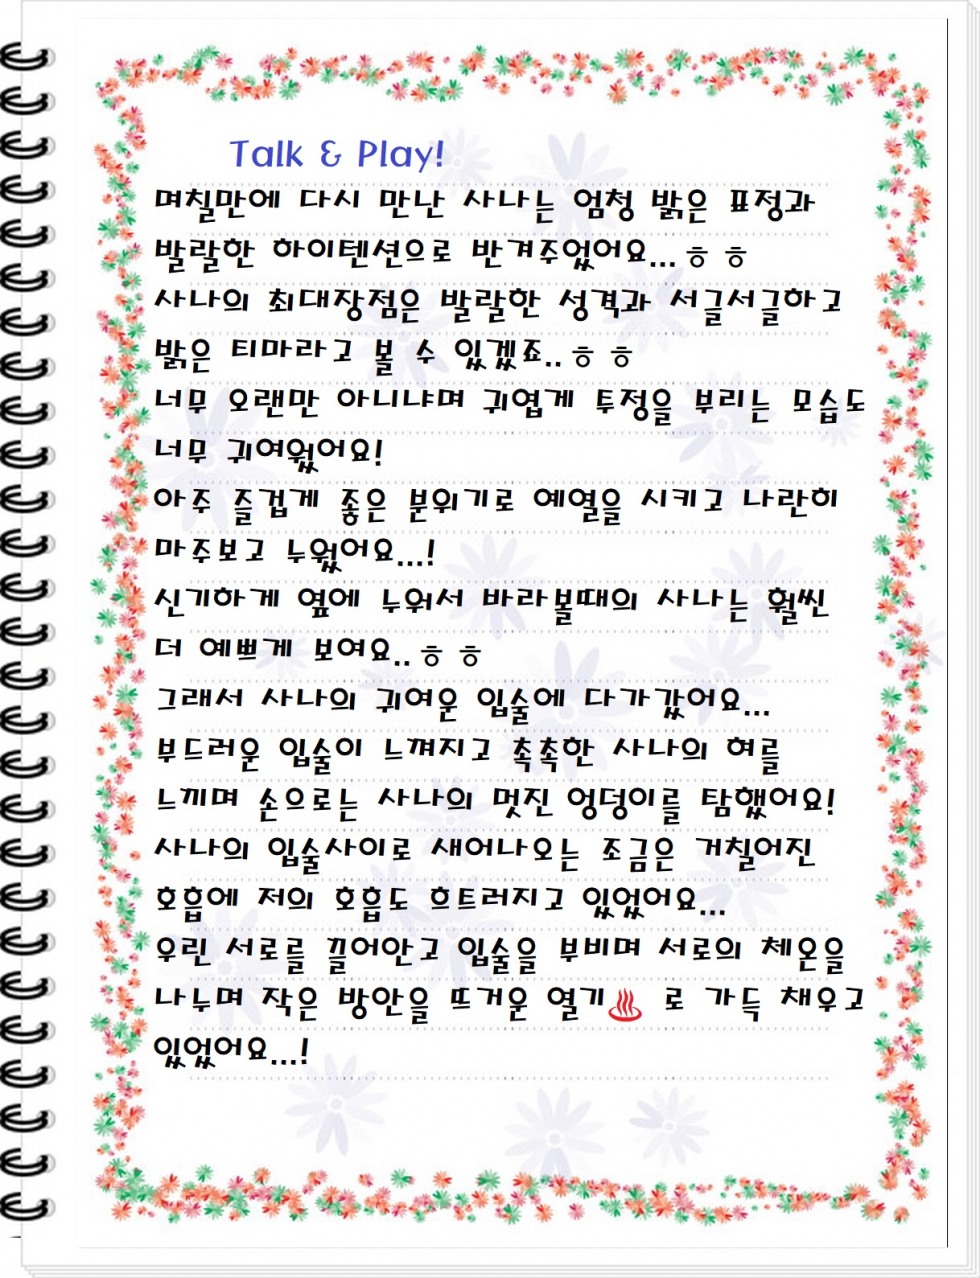 Talk & Play!
며칠만에 다시 만난 사나는 엄청 밝은 표정과
발랄한 하이텐션으로 반겨주었어요...ㅎㅎ
사나의 최대장점은 발랄한 성격과 서글서글하고
밝은 티마라고 볼 수 있겠죠..ㅎㅎ
너무 오랜만 아니냐며 귀엽게 투정을 부리는 모습도
너무 귀여웠어요!
아주 즐겁게 좋은 분위기로 예열을 시키고 나란히
마주보고 누웠어요...!
신기하게 옆에 누워서 바라볼때의 사나는 훨씬
더 예쁘게 보여요..ㅎㅎ
그래서 사나의 귀여운 입술에 다가갔어요...
부드러운 입술이 느껴지고 촉촉한 사나의 혀를
느끼며 손으로는 사나의 멋진 엉덩이를 탐했어요!
사나의 입술사이로 새어나오는 조금은 거칠어진
호흡에 저의 호흡도 흐트러지고 있었어요...
우린 서로를 끌어안고 입술을 부비며 서로의 체온을
나누며 작은 방안을 뜨거운 열기♨️ 로 가득 채우고
있었어요...!